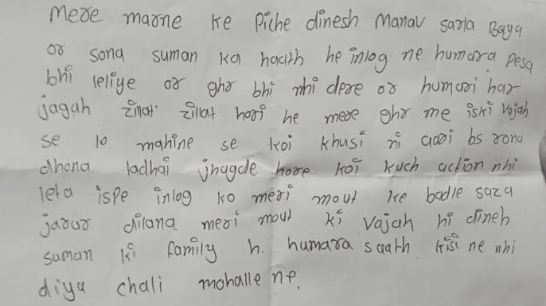 Mere marne ke Piche dinesh Manav sarla Baya
or sona suman ka haath he inlog ne humara pesa
bhi leliye or ghr bhi nhi dere or humari har
jagah horı he mere ghr me iski vajah
se 10 mahine se koi khusi ni aayi bs rona
dhona ladhai jhagde hore koi kuch action nhi
leta ispe inlog ko meri mout ke badle saza
jarur dilana meri mout ki vajah hi dineh
suman ki family h. humara saath kisi ne nhi
diya chali mohalle ne.